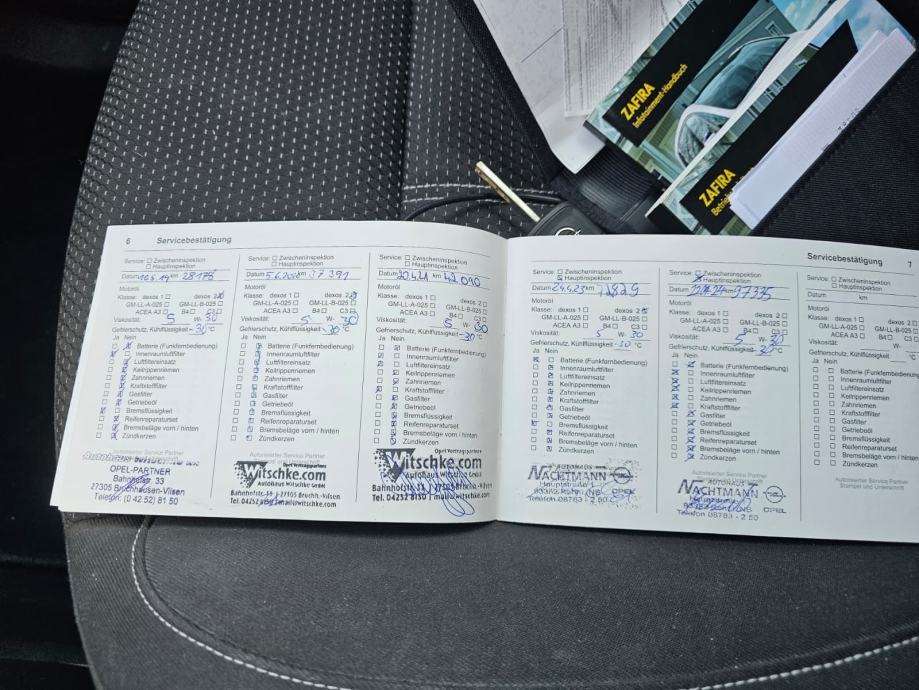 ZAFIRA
Infotainment-Handbuch
ZAFIRA
6 Servicebestätigung
Service: ☐ Zwischeninspektion
☐ Hauptinspektion
Datum 10.5.19 km 28175
Motoröl
Klasse: dexos 1 ☐ dexos 2 ☒
GM-LL-A-025 ☐ GM-LL-B-025 ☐
ACEA A3 ☐ B4 ☐ C3 ☐
Viskosität: 5 W- 30
Gefrierschutz, Kühlflüssigkeit - 30 °C
Ja Nein
Batterie (Funkfernbedienung)
Innenraumluftfilter
Luftfiltereinsatz
Keilrippenriemen
Zahnriemen
Kraftstofffilter
Gasfilter
Getriebeöl
Bremsflüssigkeit
Reifenreparaturset
Bremsbeläge vorn / hinten
Zündkerzen
OPEL-PARTNER
Bahnhofstr. 33
27305 Bruchhausen-Vilsen
Telefon: (0 42 52) 81 50
Service: ☐ Zwischeninspektion
☐ Hauptinspektion
Datum 5.6.20 km 37391
Motoröl
Klasse: dexos 1 ☐ dexos 2
GM-LL-A-025 ☐ GM-LL-B-025 ☐
ACEA A3 ☐ B4 ☐ C3 ☐
Viskosität: 5 W- 30
Gefrierschutz, Kühlflüssigkeit - 30 °C
Ja Nein
Batterie (Funkfernbedienung)
Innenraumluftfilter
Luftfiltereinsatz
Keilrippenriemen
Zahnriemen
Kraftstofffilter
Gasfilter
Getriebeöl
Bremsflüssigkeit
Reifenreparaturset
Bremsbeläge vorn / hinten
Zündkerzen
Autorisierter Service Partner
Opel Vertragspartner
Witschke.com
Autohaus Witschke GmbH
Bahnhofstr. 33 | 27305 Bruchh.-Vilsen
Tel. 04252 8150 | mail@witschke.com
Service: ☐ Zwischeninspektion
☐ Hauptinspektion
Datum 20.4.21 km 42010
Motoröl
Klasse: dexos 1 ☐ dexos 2
GM-LL-A-025 ☐ GM-LL-B-025 ☐
ACEA A3 ☐ B4 ☐ C3
Viskosität: 5 W- 30
Gefrierschutz, Kühlflüssigkeit -30 °C
Ja Nein
Batterie (Funkfernbedienung)
Innenraumluftfilter
Luftfiltereinsatz
Keilrippenriemen
Zahnriemen
Kraftstofffilter
Gasfilter
Getriebeöl
Bremsflüssigkeit
Reifenreparaturset
Bremsbeläge vorn / hinten
Zündkerzen
Opel Vertragspartner
Witschke.com
Autohaus Witschke GmbH
Bahnhofstr. 33 | 27305 Bruchh.-Vilsen
Tel. 04252 8150 | mail@witschke.com
Servicebestätigung 7
Service: ☐ Zwischeninspektion
Hauptinspektion
Datum 24.4.23 72829
Motoröl
Klasse: dexos 1 ☐ dexos 2
GM-LL-A-025 ☐ GM-LL-B-025 ☐
ACEA A3 ☐ B4 ☐ C3
Viskosität: 5 W- 30
Gefrierschutz, Kühlflüssigkeit °C
Ja Nein
Batterie (Funkfernbedienung)
Innenraumluftfilter
Luftfiltereinsatz
Keilrippenriemen
Zahnriemen
Kraftstofffilter
Gasfilter
Getriebeöl
Bremsflüssigkeit
Reifenreparaturset
Bremsbeläge vorn / hinten
Zündkerzen
NACHTMANN
Hauptstraße 1
OPEL
Telefon 08783 - 2 50
Service: Zwischeninspektion
☐ Hauptinspektion
Datum km 97335
Motoröl
Klasse: dexos 1 ☐ dexos 2
GM-LL-A-025 ☐ GM-LL-B-025 ☐
ACEA A3 ☐ B4 ☐ C3
Viskosität: 5 W- 30
Gefrierschutz, Kühlflüssigkeit - 30 °C
Ja Nein
Batterie (Funkfernbedienung)
Innenraumluftfilter
Luftfiltereinsatz
Keilrippenriemen
Zahnriemen
Kraftstofffilter
Gasfilter
Getriebeöl
Bremsflüssigkeit
Reifenreparaturset
Bremsbeläge vorn / hinten
Zündkerzen
Autorisierter Service Partner
AUTOHAUS
NACHTMANN
OPEL
Telefon 08783 - 2 50
Service: ☐ Zwischeninspektion
☐ Hauptinspektion
Datum km
Motoröl
Klasse: dexos 1 ☐ dexos 2 ☐
GM-LL-A-025 ☐ GM-LL-B-025
ACEA A3 ☐ B4 ☐ C3
Viskosität: W-
Gefrierschutz, Kühlflüssigkeit
Ja Nein
Batterie (Funkfernbedienung)
Innenraumluftfilter
Luftfiltereinsatz
Keilrippenriemen
Zahnriemen
Kraftstofffilter
Gasfilter
Getriebeöl
Bremsflüssigkeit
Reifenreparaturset
Bremsbeläge vorn / hinten
Zündkerzen
Autorisierter Service Partner
Stempel und Unterschrift